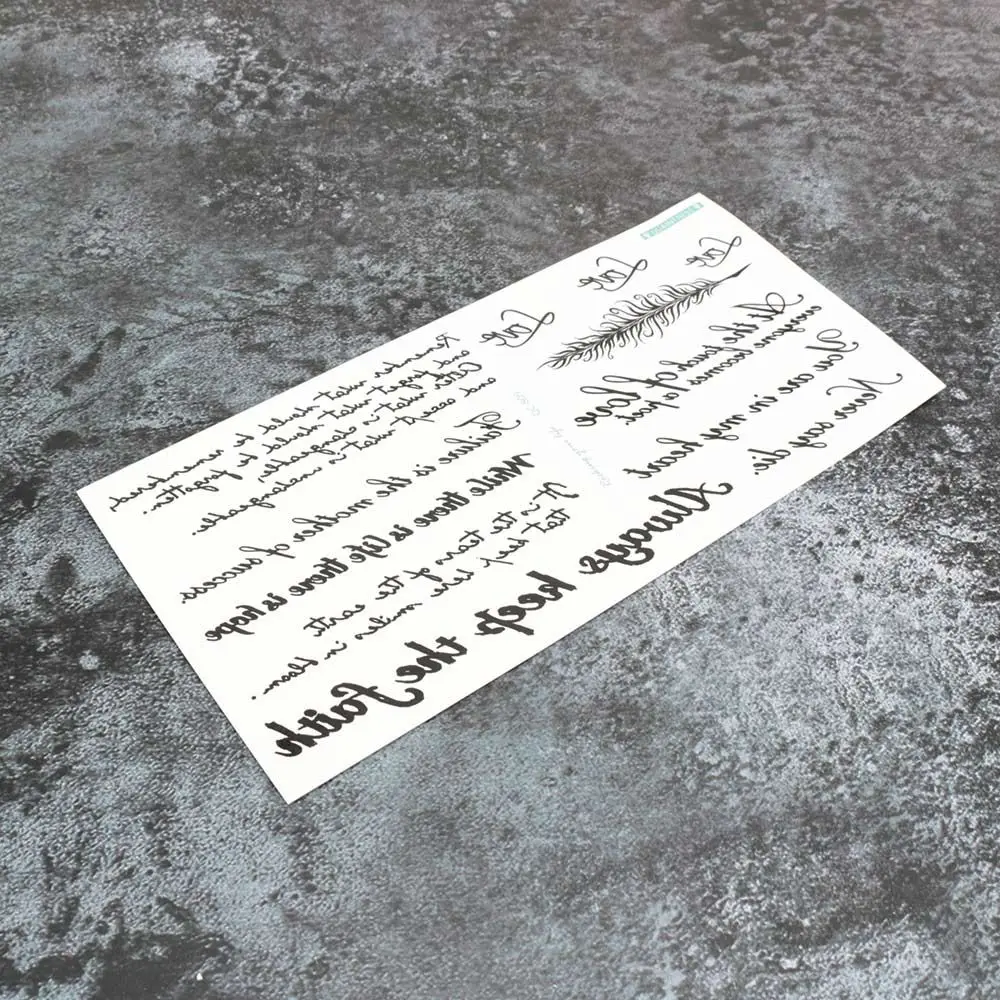 Love
Love
Love
At the touch of love
everyone becomes a poet.
You are in my heart
Never say die.
Remember what should be remembered,
and forget what should be forgotten.
Alter what is changeable,
and accept what is unchangeable.
Failure is the mother of success.
While there is life there is hope
It is the tears of the earth
that keep her smiles in bloom.
Always keep the faith